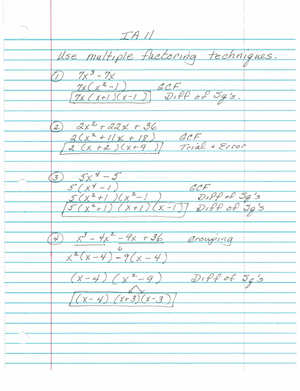 IA 11
Use multiple factoring techniques.
① 7x³ - 7x
7x(x² - 1) GCF
7x(x+1)(x-1) Diff of Sq's.
② 2x² + 22x + 36
2(x² + 11x + 18) GCF
2(x+2)(x+9) Trial + Error
③ 5x⁴ - 5
5(x⁴ - 1) GCF
5(x²+1)(x²-1) Diff of Sq's
5(x²+1)(x+1)(x-1) Diff of Sq's
④ x³ - 4x² - 9x + 36 Grouping
x²(x-4) - 9(x-4)
(x-4)(x²-9) Diff of Sq's
(x-4)(x+3)(x-3)